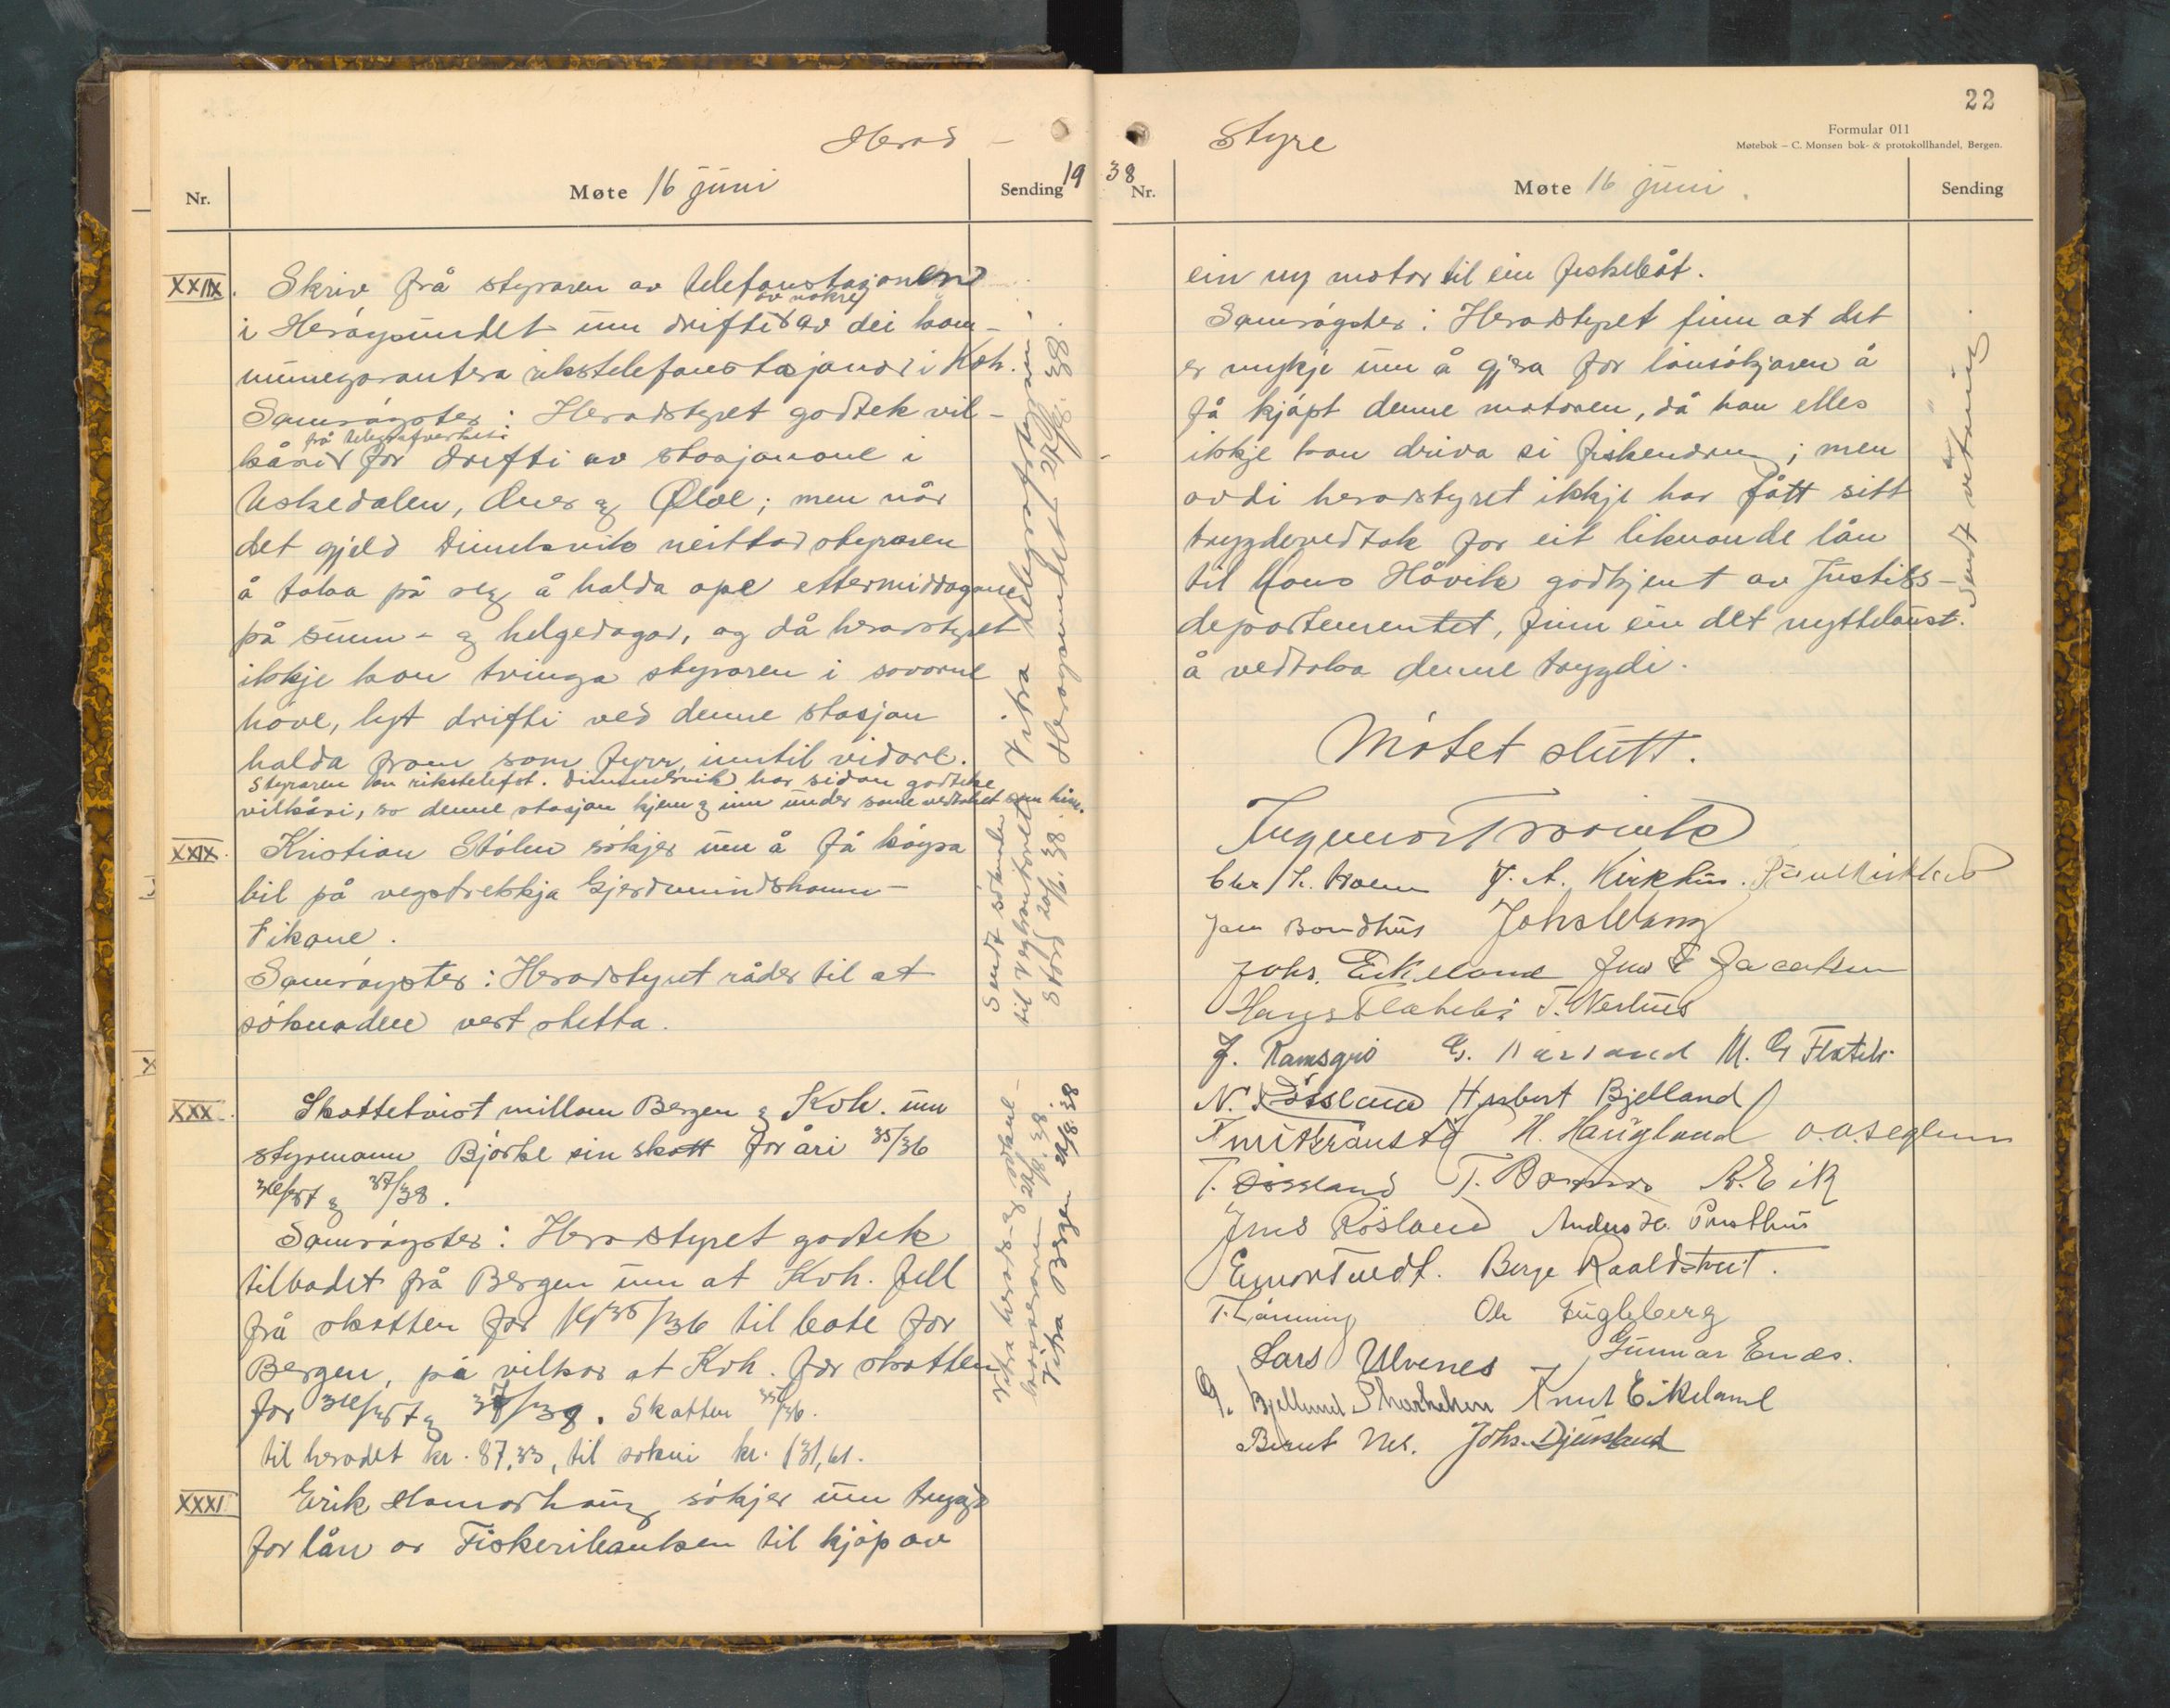 Herad –
Nr.
Møte 16 juni
Sending
19
XXIIX.
Skriv frå styraren av telefonstasjonen
av nokre
i Herøysundet um drifti av dei kom-
munegarantera rikstelefonstasjonar i Kvh.
Samrøystes: Heradstyret godtek vil-
frå telegrafverket
kåri for drifti av stasjonane i
Uskedalen, Ænes og Ølve; men når
det gjeld Dimelsvik neittar styraren
å taka på seg å halda ope ettermiddagane
på sunn- og helgedagar, og då heradstyret
ikkje kan tvinga styraren i sovorne
høve, lyt drifti ved denne stasjon
halda fram som fyrr, inntil vidare.
Styraren av rikstelefst. Dimmelsvik har sidan godteke
vilkåri, so denne stasjon kjem og inn under same vedtaket som hine.
Vitra telegrafstyraren i
Herøysundet 27/8. 38.
XXIX.
Kristian Stølen søkjer um å få køyra
bil på vegstrekkja Gjerdmundshamn –
Fikane.
Samrøystes: Heradstyret råder til at
søknaden vert stetta.
Sendt søknaden
til Vegkontoret
Stord 20/6. 38.
XXX.
Skattetvist millom Bergen og Kvh. um
styrmann Bjørke sin skatt for åri 35/36
36/37 og 37/38.
Samrøystes: Heradstyret godtek
tilbodet frå Bergen um at Kvh. fell
frå skatten for 1935/36 til bate for
Bergen, på vilkor at Kvh. fær skatten
for 36/37 og 37/38. Skatten 35/36.
til heradet kr. 87,33, til sokni kr. 131,61.
Vitra herads- og sokne-
kasseraren 22/8. 38.
Vitra Bergen 22/8. 38
XXXI
Erik Hamarhaug søkjer um trygd
for lån or Fiskeribanken til kjøp av
22
Formular 011
Møtebok – C. Monsen bok- & protokollhandel, Bergen.
Styre
38
Nr.
Møte 16 juni.
Sending
ein ny motor til ein fiskebåt.
Samrøystes: Heradstyret finn at det
er mykje um å gjera for lånsøkjaren å
få kjøpt denne motoren, då han elles
ikkje kan driva si fiskendring; men
avdi heradstyret ikkje har fått sitt
trygdevedtak for eit liknande lån
til Mons Håvik godkjent av Justits-
departementet, finn ein det nyttelaust.
å vedtaka denne trygdi.
Sendt utskrift.
Møtet slutt.
Ingvar Traavik
J. A. Kirkhus.
Jan Bondhus
Johs. Eikeland Jens Jacobsen
Hans Flatebø T. Nerhus
J. Ramsgrø M. G Flateb
N. Døssland Herbert Bjelland
H. Haugland O.A. Seglem
T. Døssland A. Eik
Jens Røsland Anders H. Presthus
Einar Tvedt. Berge Raaldstveit.
T. Lønning Ole Fugleberg
Lars Ulvenes Gunnar Enes.
Knut Eikeland
Bernt Nes. Johs. Djuvsland